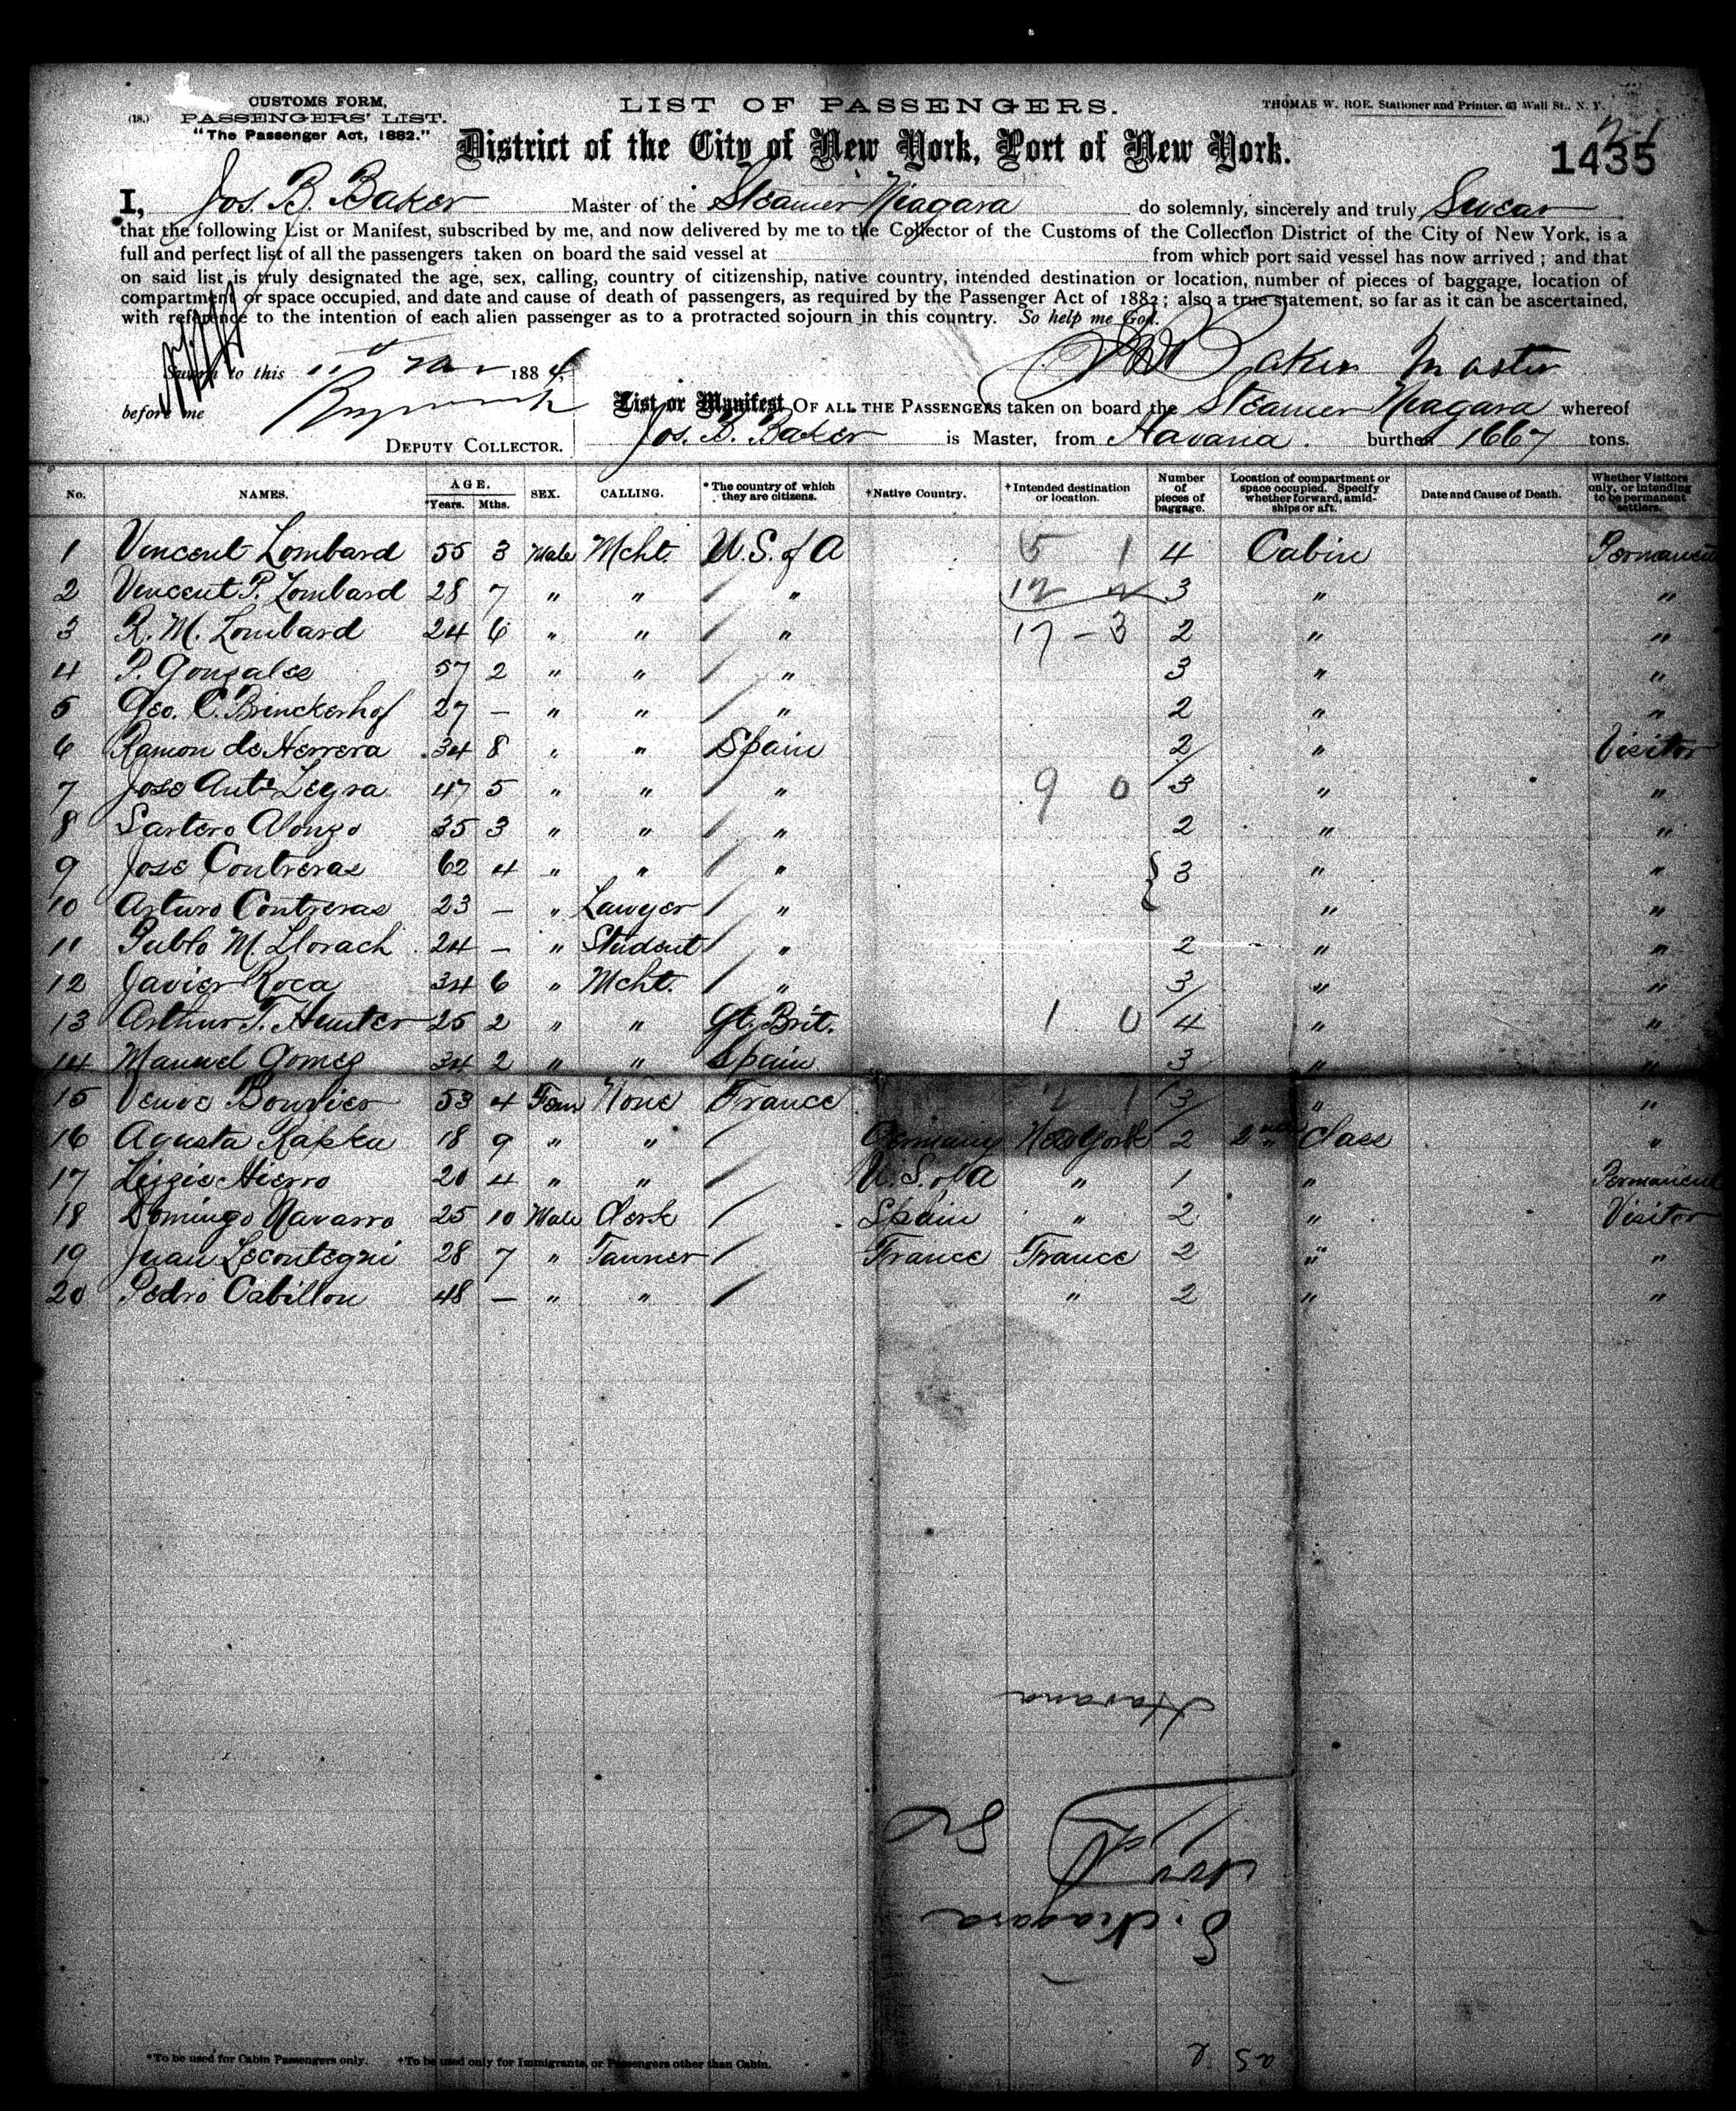 CUSTOMS FORM,
(18.) PASSENGERS' LIST.
"The Passenger Act, 1882."
LIST OF PASSENGERS.
THOMAS W. ROE, Stationer and Printer, 63 Wall St., N. Y.
District of the City of New York, Port of New York.
1435
I, Jos. B. Baker Master of the Steamer Niagara do solemnly, sincerely and truly Swear
that the following List or Manifest, subscribed by me, and now delivered by me to the Collector of the Customs of the Collection District of the City of New York, is a
full and perfect list of all the passengers taken on board the said vessel at from which port said vessel has now arrived; and that
on said list is truly designated the age, sex, calling, country of citizenship, native country, intended destination or location, number of pieces of baggage, location of
compartment or space occupied, and date and cause of death of passengers, as required by the Passenger Act of 1882; also a true statement, so far as it can be ascertained,
with reference to the intention of each alien passenger as to a protracted sojourn in this country. So help me God.
J B Baker Master
Sworn to this 1884
before me
DEPUTY COLLECTOR.
List or Manifest OF ALL THE PASSENGERS taken on board the Steamer Niagara whereof
Jos. B. Baker is Master, from Havana. burthen 1667 tons.
No. NAMES. AGE. Years. Mths. SEX. CALLING. *The country of which they are citizens. †Native Country. †Intended destination or location. Number of pieces of baggage. Location of compartment or space occupied. Specify whether forward, amidships or aft. Date and Cause of Death. Whether Visitors only, or intending to be permanent settlers.
1 Vincent Lombard 55 3 Male Mcht. U.S. of A 5 1 4 Cabin Permanent
2 Vincent P. Lombard 28 7 " " / " 12 2 3 " "
3 R. M. Lombard 24 6 " " / " 17 - 3 2 " "
4 P. Gonzales 57 2 " " / " 3 " "
5 Geo. C. Brinckerhof 27 — " " / " 2 " "
6 Ramon de Herrera 34 8 " " Spain 2 " Visitor
7 Jose Anto Legra 47 5 " " / " 9 0 3 " "
8 Santero Alonzo 35 3 " " / " 2 " "
9 Jose Contreras 62 4 " " / " { 3 " "
10 Arturo Contreras 23 — " Lawyer / " " "
11 Pablo M. Llorach 24 — " Student / " 2 " "
12 Javier Roca 34 6 " Mcht. / " 3 " "
13 Arthur T. Hunter 25 2 " " Gt. Brit. 1 0 4 " "
14 Manuel Gomez 34 2 " " Spain 3 " "
15 Veuve Bouvier 53 4 Fem None France 3 " "
16 Agusta 18 9 " " / Germany New York 2 2nd Class "
17 Lizzie Hierro 20 4 " " / U.S. of A " 1 " Permanent
18 Domingo Navarro 25 10 Male Clerk / Spain " 2 " Visitor
19 Juan 28 7 " Tanner / France France 2 " "
20 Pedro Cabillon 48 — " " / " 2 " "
Havana
S. Niagara
*To be used for Cabin Passengers only. †To be used only for Immigrants, or Passengers other than Cabin.